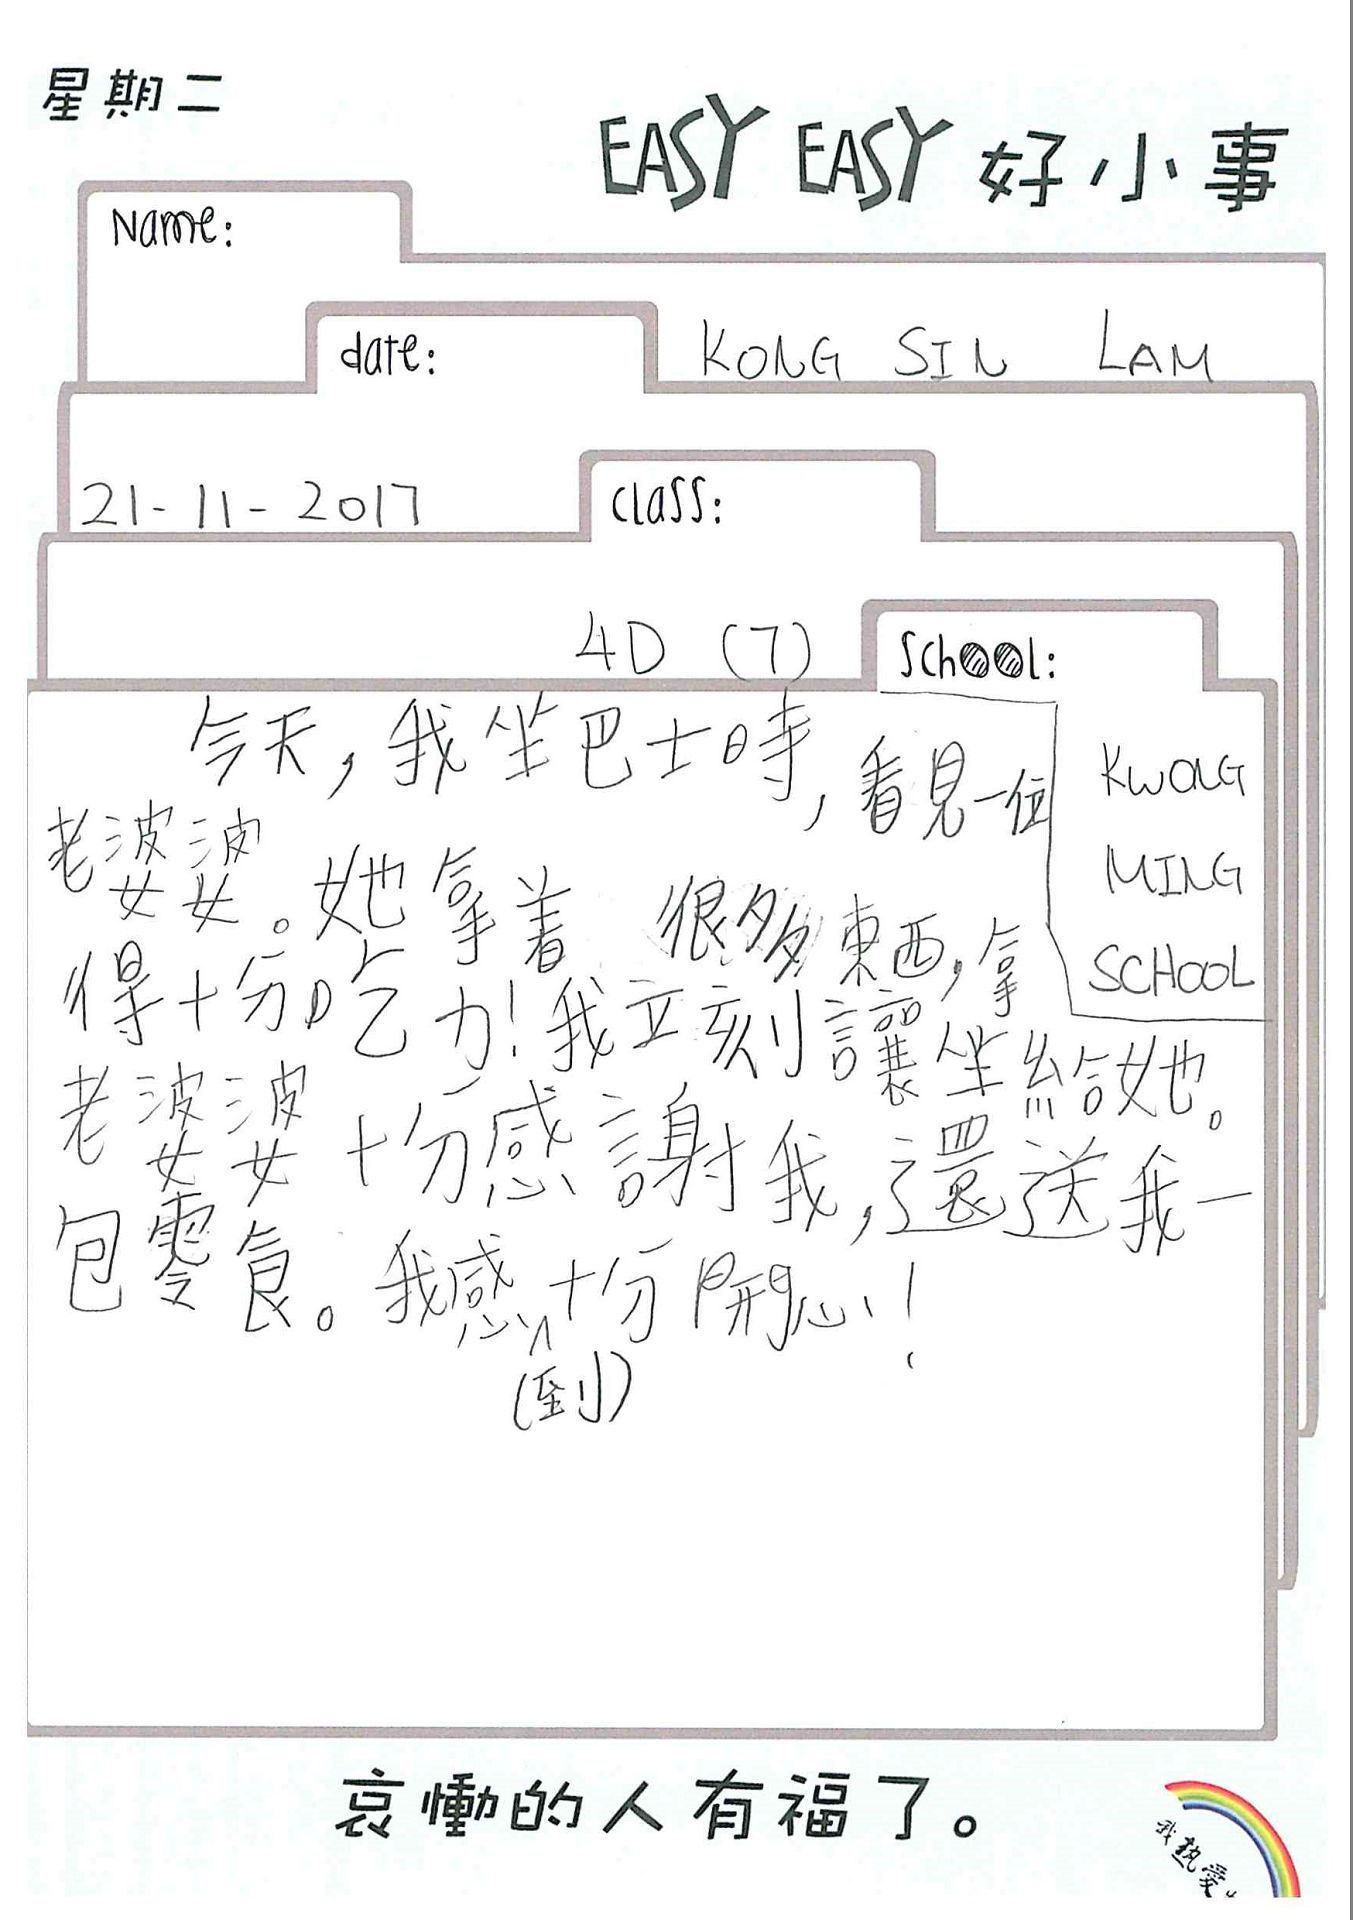 星期二
EASY EASY 好小事
Name:
date:
KONG SIN LAM
21-11-2017
class:
4D (7)
School:
KWONG
MING
SCHOOL
今天，我坐巴士時，看見一位
老婆婆。她拿着很多東西，拿
得十分吃力！我立刻讓坐給她。
老婆婆十分感謝我，還送我一
包零食。我感十分開心！
(到)
哀慟的人有福了。
我熱愛